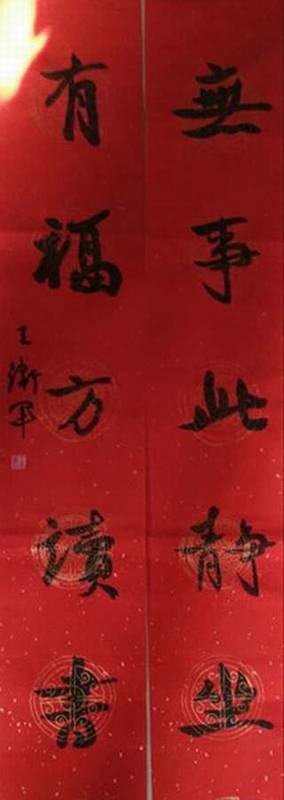 無事此靜坐
有福方讀書
王衛軍